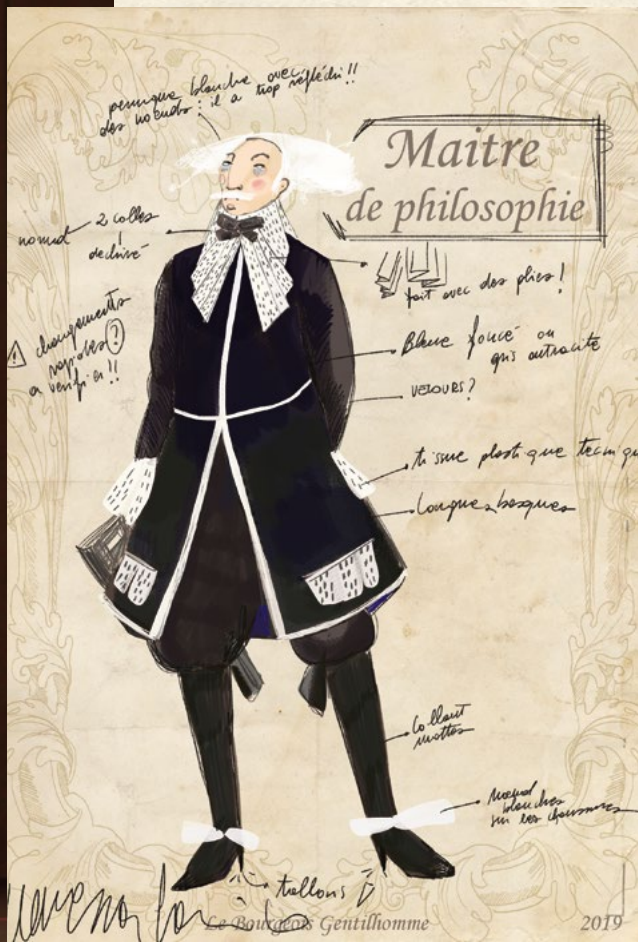 perruque blanche avec
des noeuds : il a trop réfléchi!!
Maitre
de philosophie
noeud 2 colles
déchiré
fait avec des plies!
changements
rapides?
a verifier!!
Bleue foncé ou
gris antracite
VELOURS?
tissue plastique tecnique
longues basques
Collant
mattes
noeud
blanches
sur les chaussures
tallons
Le Bourgeois Gentilhomme
2019